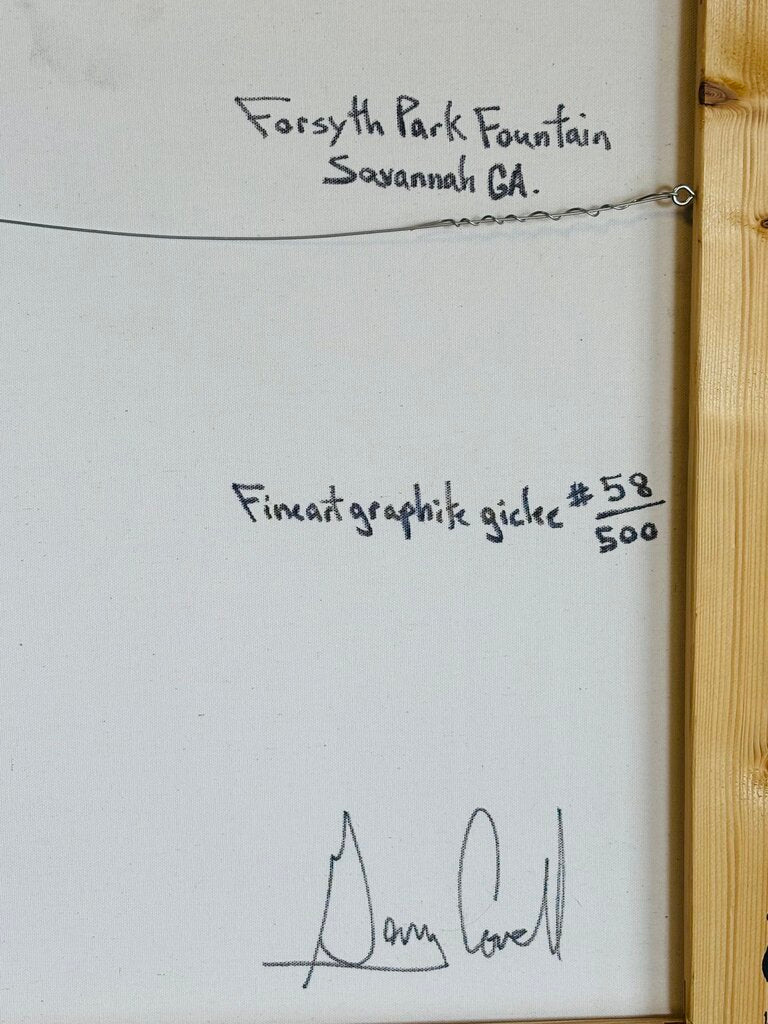 Forsyth Park Fountain
Savannah GA.
Fineart graphite giclee # 58/500